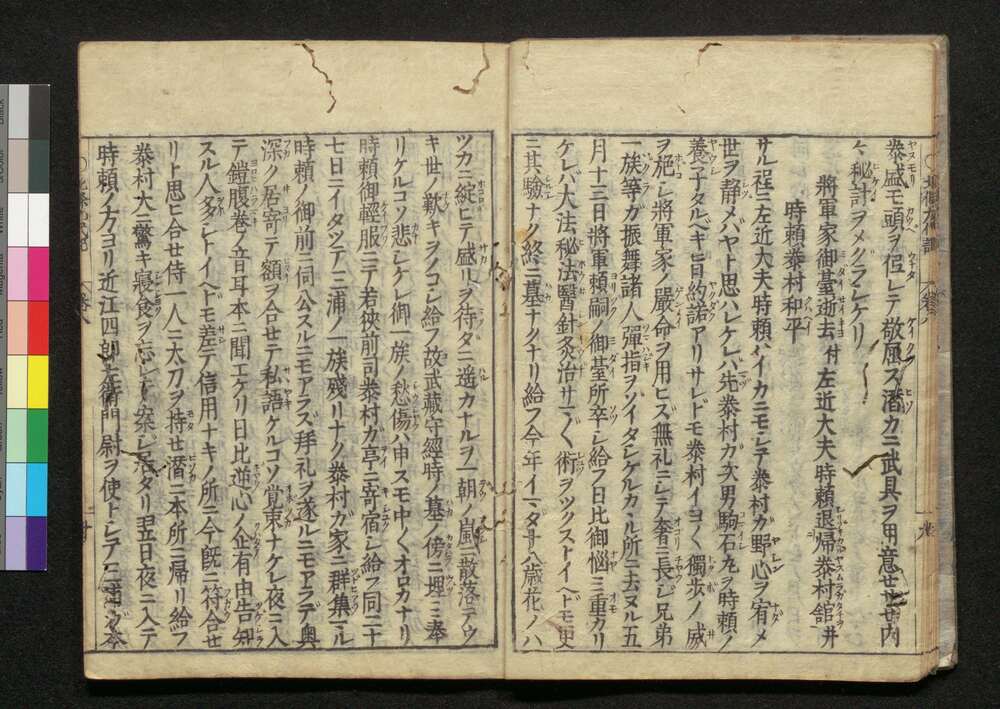 泰盛モ頭ヲ低レテ敬風ス潛カニ武具ヲ用意セサセ内
々秘計ヲメグラシケリ
將軍家御臺逝去付左近大夫時頼退帰泰村舘并
時頼泰村和平
サル程ニ左近大夫時頼ハイカニモシテ泰村ガ野心ヲ宥メ
世ヲ靜メバヤト思ハレケレバ先泰村カ次男駒石丸ヲ時頼ノ
養子タルベキ旨約諾アリサレドモ泰村イヨ〱獨歩ノ威
ヲ施シ將軍家ノ嚴命ヲ用ヒズ無礼ニシテ奢ニ長ジ兄弟
一族等ガ振舞諸人彈指ヲゾイタシケルカヽル所ニ去ヌル五
月十三日將軍頼嗣ノ御臺所卒シ給フ日比御惱ミ重カリ
ケレバ大法秘法醫針灸治サマ〲術ヲツクストイヘドモ更
ニ其驗ナク終ニ墓ナクナリ給フ今年イマダ十八歳花ノハ
ツカニ綻ビテ盛リヲ待タニ遥カナルヲ一朝ノ嵐ニ散落テウ
キ世ノ歎キヲノコシ給フ故武藏守經時ノ墓ノ傍ニ埋ミ奉
リケルコソ悲シケレ御一族ノ愁傷ハ申スモ中〱オロカナリ
時頼御輕服ニテ若狹前司泰村ガ亭ニ寄宿シ給フ同二十
七日ニイタツテ三浦ノ一族殘リナク泰村ガ家ニ群集マル
時頼ノ御前ニ伺公スルニモアラズ拜礼ヲ遂ルニモアラデ奥
深ク居寄テ額ヲ合セテ私語ケルコソ覚束ナケレ夜ニ入
テ鎧腹卷ノ音耳本ニ聞エケリ日比逆心ノ企有由告知
スル人多シトイヘドモ差テ信用ナキノ所ニ今既ニ符合セ
リト思ヒ合セ侍一人ニ太刀ヲ持セ潛ニ本所ニ帰リ給フ
泰村大ニ驚キ寢食ヲ忘レテ案ジ居タリ翌日夜ニ入テ
時頼ノ方ヨリ近江四郎左衛門尉ヲ使トシテ